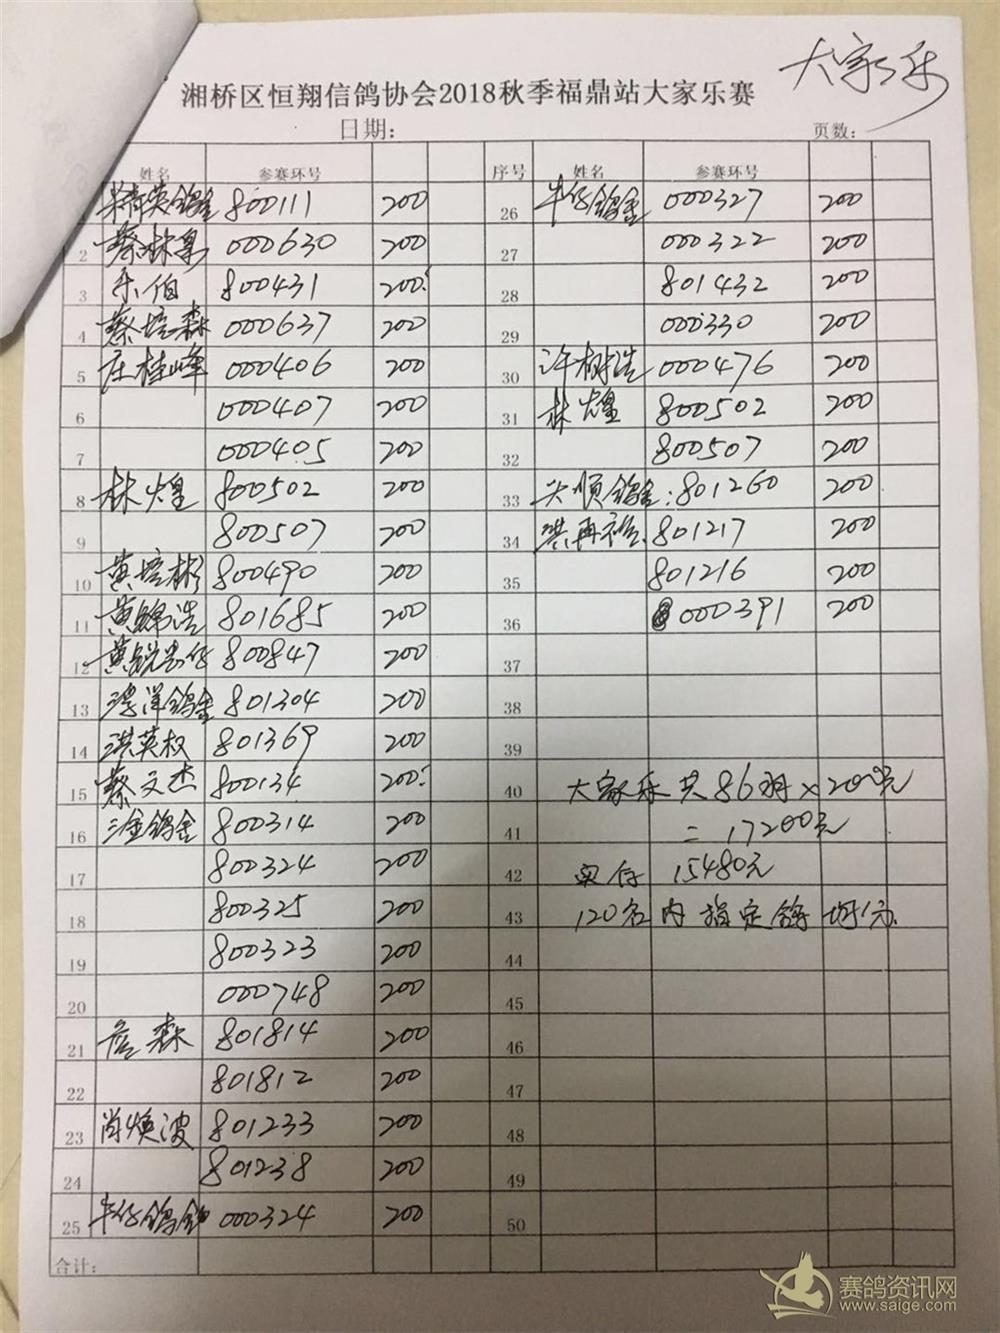 大家乐
湘桥区恒翔信鸽协会2018秋季福鼎站大家乐赛
日期： 页数：
姓名 参赛环号 序号 姓名 参赛环号
精英鸽舍 800111 200 26 牛仔鸽舍 000327 200
2 蔡林 000630 200 27 000322 200
3 乐伯 800431 200 28 801432 200
4 蔡培森 000637 200 29 000330 200
5 庄桂峰 000406 200 30 许树浩 000476 200
6 000407 200 31 林煌 800502 200
7 000405 200 32 800507 200
8 林煌 800502 200 33 顺鸽舍：801260 200
9 800507 200 34 洪再 801217 200
10 黄培彬 800490 200 35 801216 200
11 黄锦浩 801685 200 36 000391 200
12 黄锐 800847 200 37
13 洋鸽舍 801304 200 38
14 洪英权 801369 200 39
15 蔡文杰 800134 200 40 大家乐共86羽×200元
16 三金鸽舍 800314 200 41 =17200元
17 800324 200 42 实存 15480元
18 800325 200 43 120名内指定鸽均分
19 800323 200 44
20 000748 200 45
21 詹森 801814 200 46
22 801812 200 47
23 肖焕波 801233 200 48
24 801238 200 49
25 牛仔鸽舍 000324 200 50
合计：
赛鸽资讯网
www.saige.com